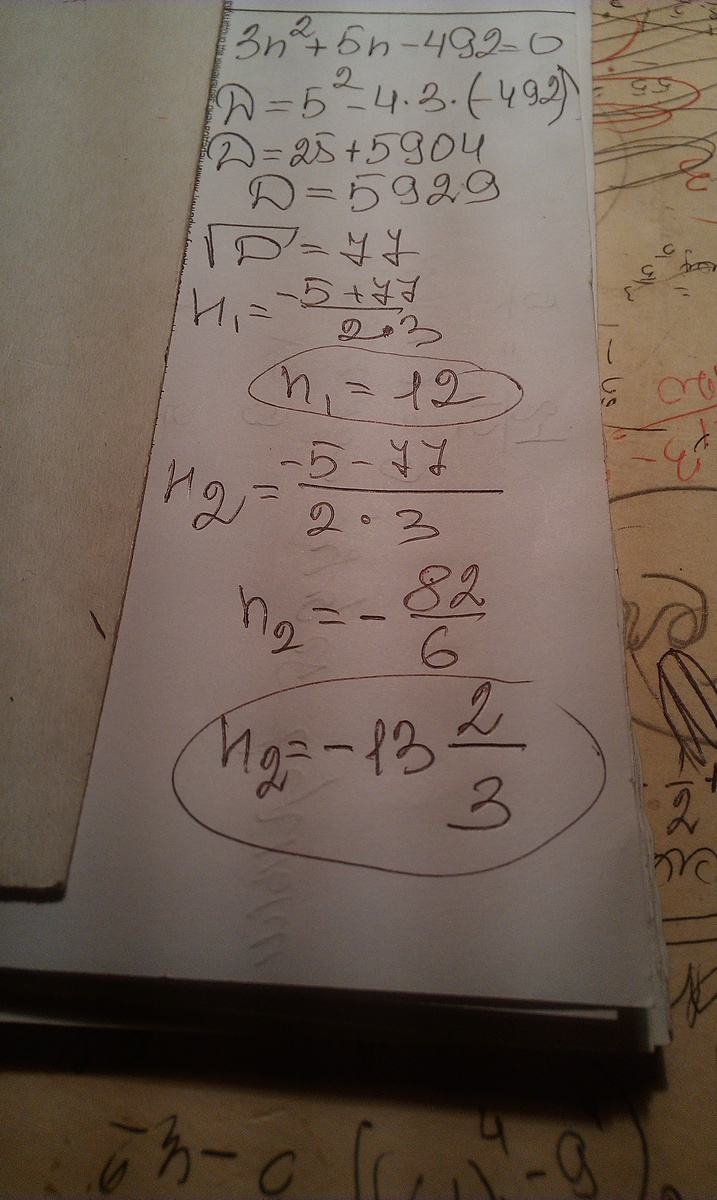 3n² + 5n - 492 = 0
D = 5² - 4 · 3 · (-492)
D = 25 + 5904
D = 5929
√D = 77
n₁ = (-5 + 77)/(2 · 3)
n₁ = 12
n₂ = (-5 - 77)/(2 · 3)
n₂ = - 82/6
n₂ = - 13 2/3